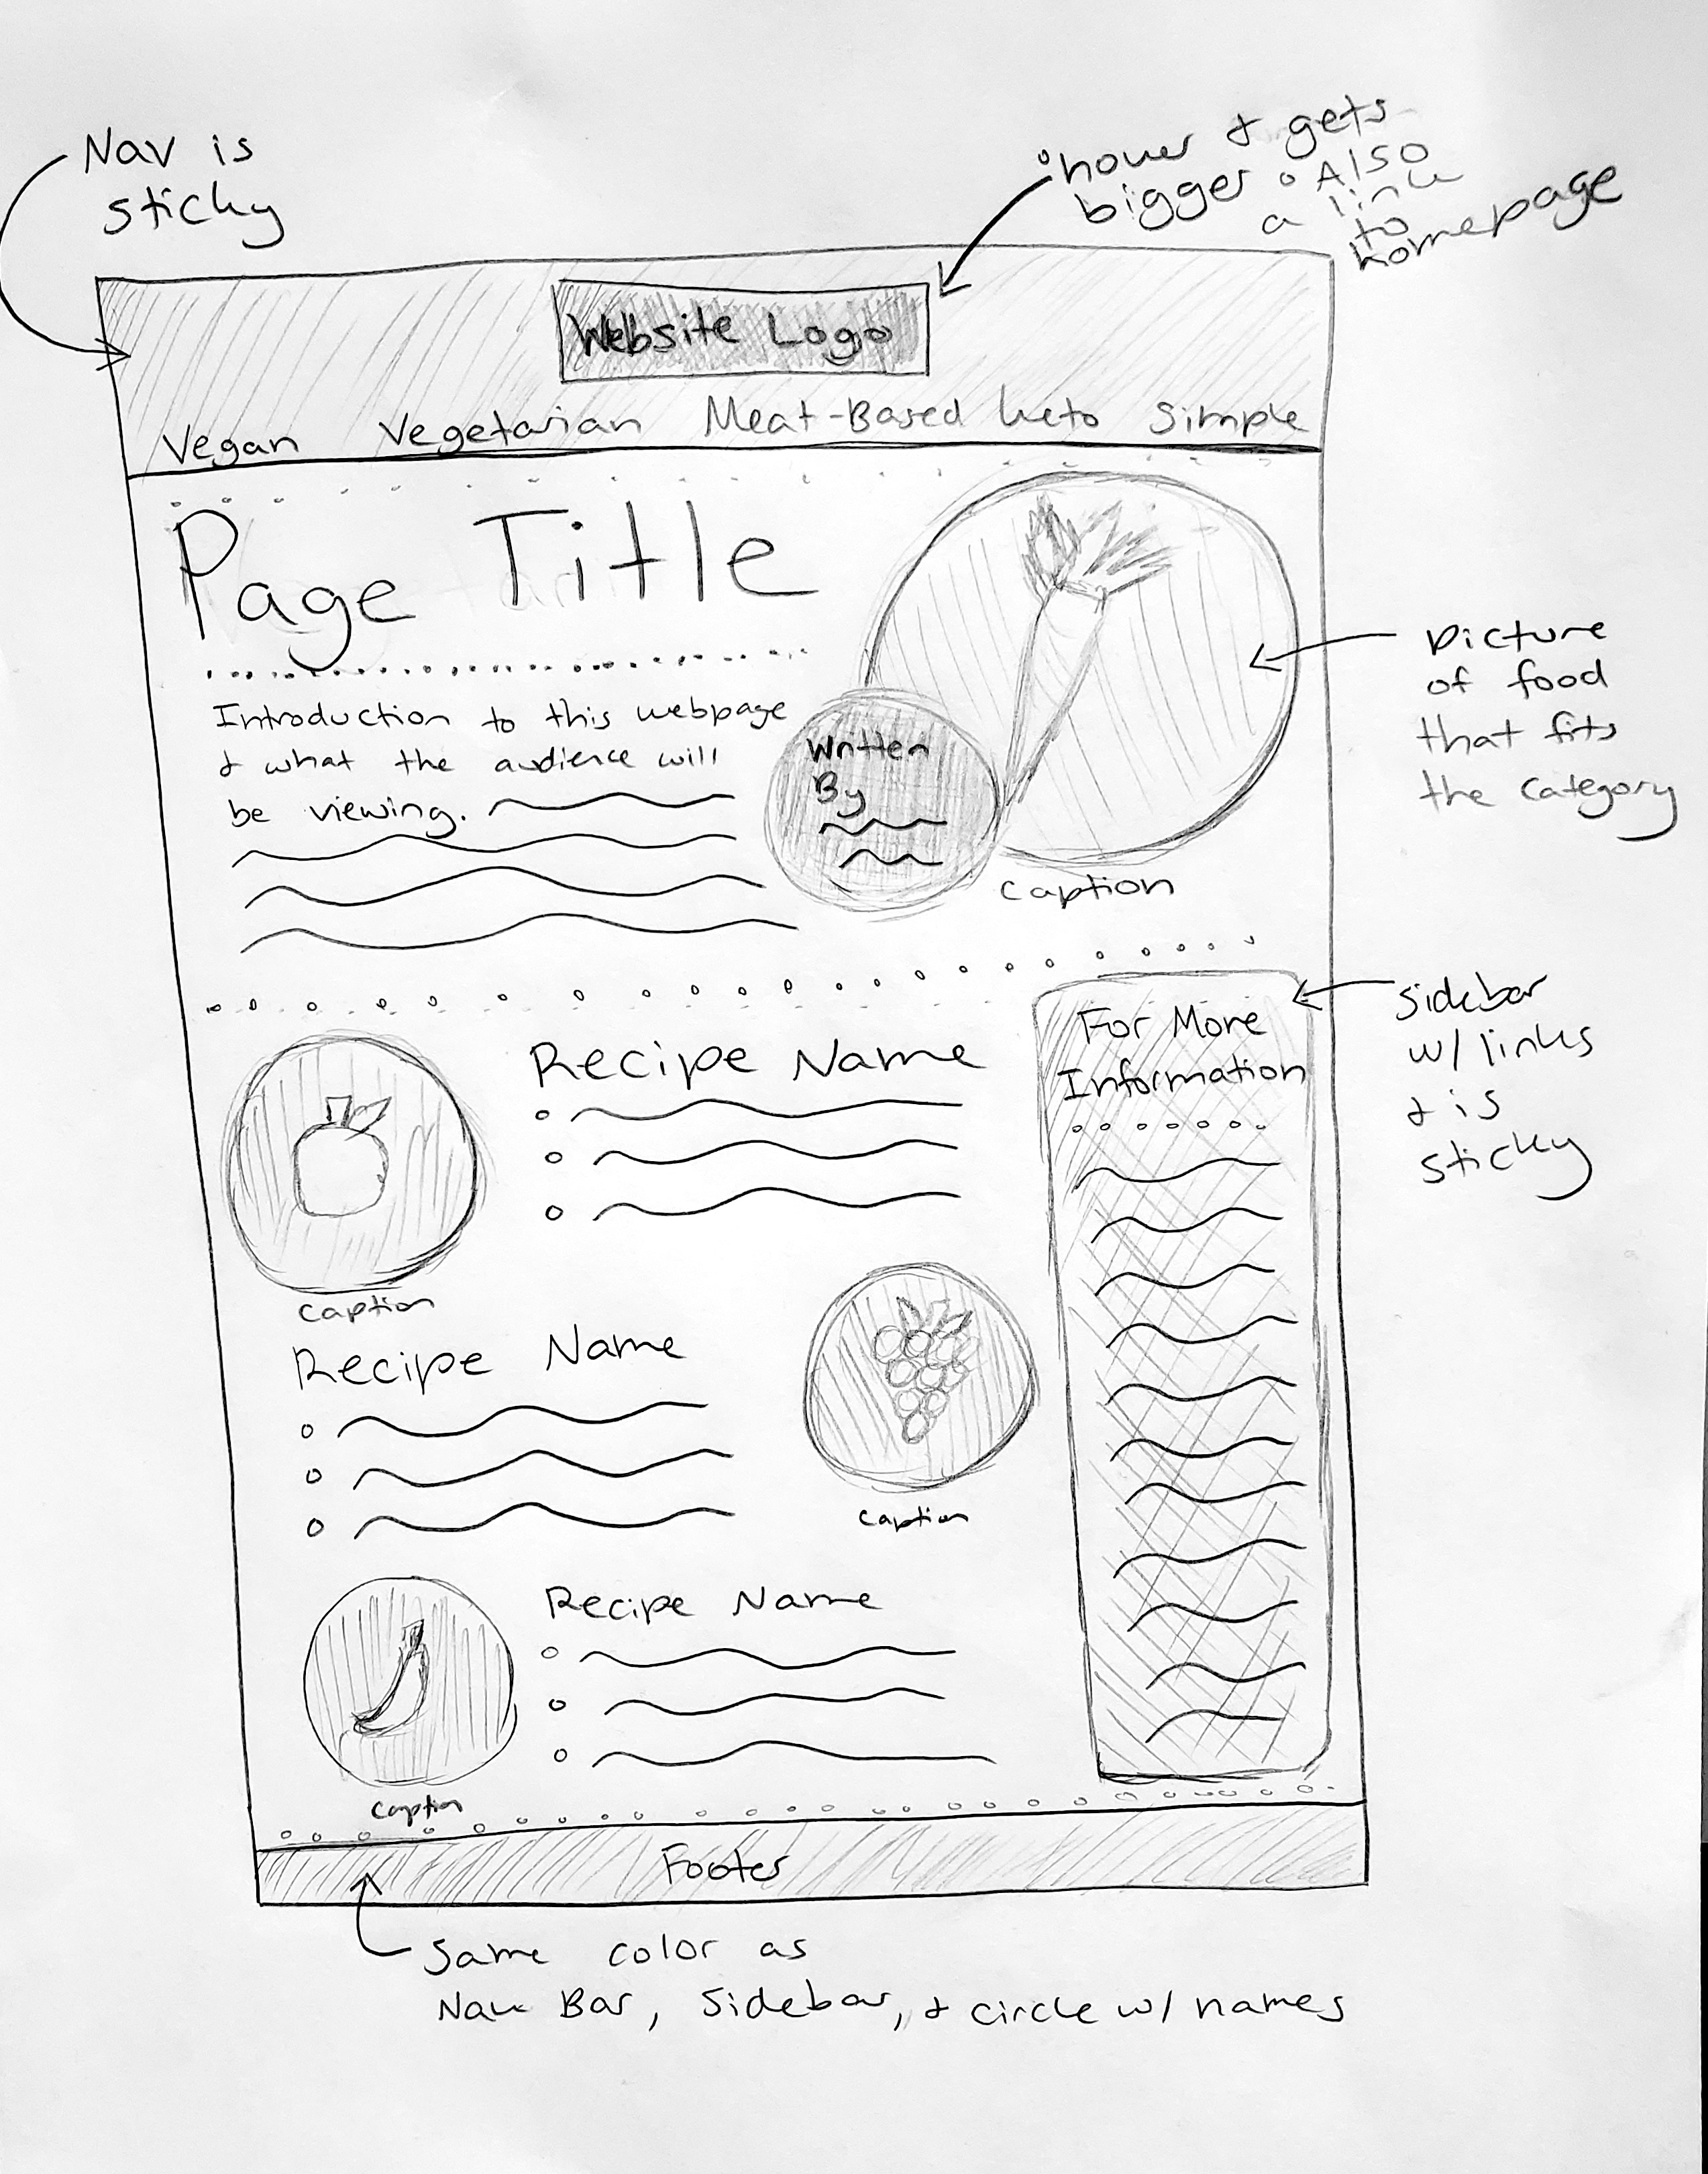 Nav is
sticky
hover & gets
bigger • Also
a link
to
homepage
Website Logo
Vegan Vegetarian Meat-Based Keto Simple
Page Title
Introduction to this webpage
& what the audience will
be viewing.
Written
By
Caption
Picture
of food
that fits
the category
Recipe Name
Caption
For More
Information
Sidebar
w/ links
& is
sticky
Recipe Name
Caption
Recipe Name
Caption
Footer
Same color as
Nav Bar, Sidebar, & circle w/ names